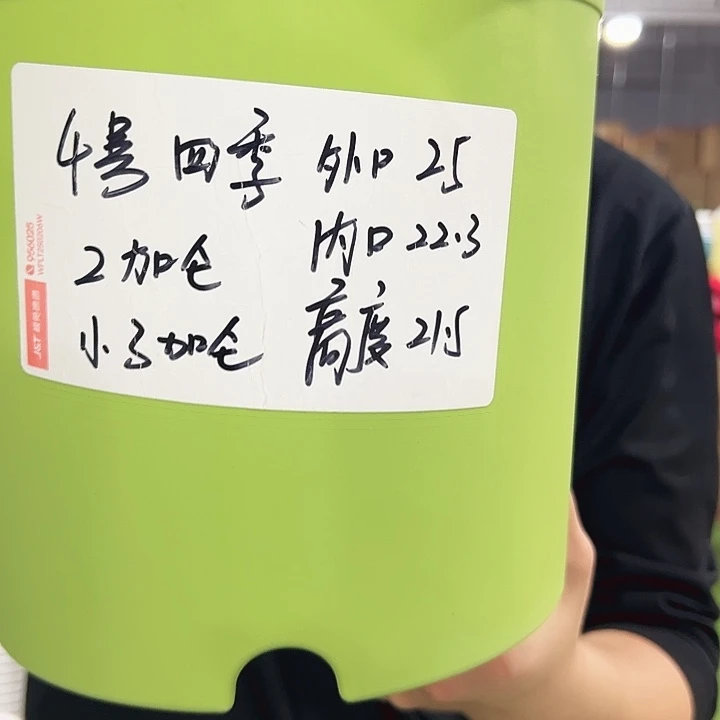 4号 四季 外口 25
2加仑 内口 22.3
小3加仑 高度 21.5
J&T 极兔速递
956025